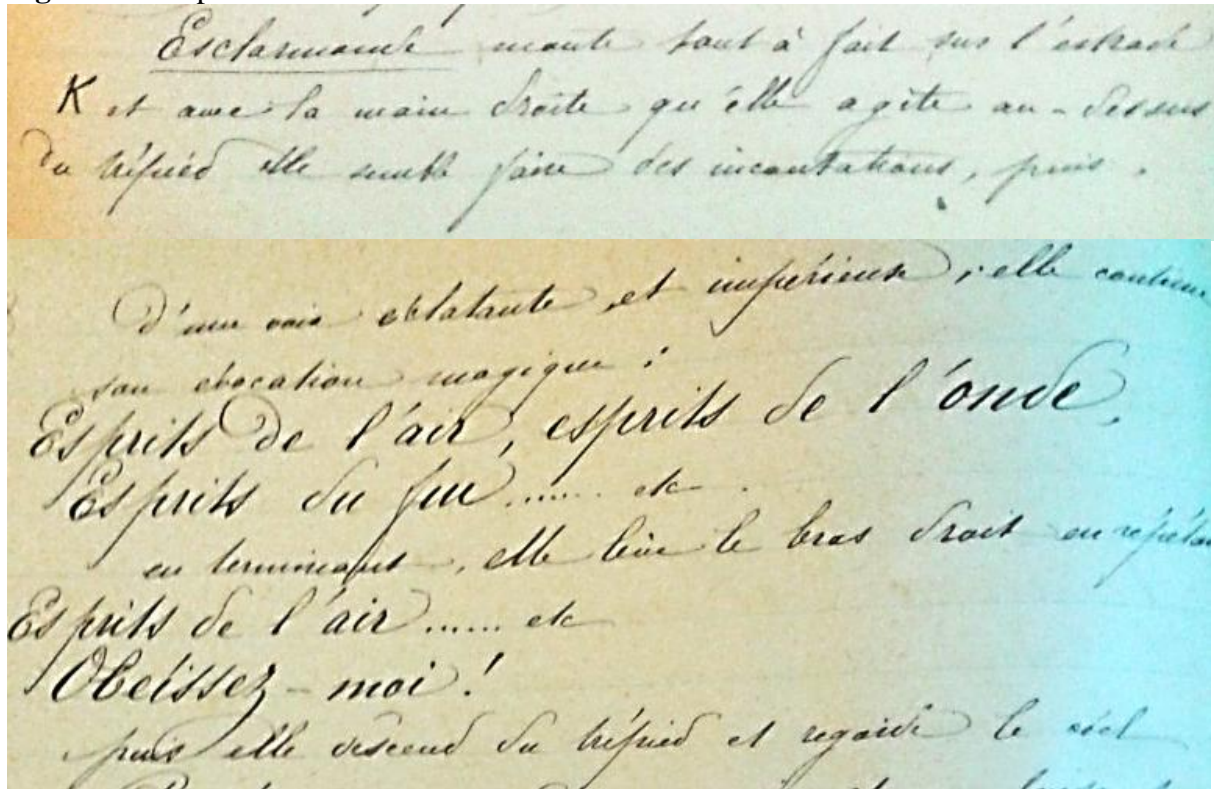 Esclarmonde monte tout à fait sur l'estrade
K et avec la main droite qu'elle agite au-dessus
du trépied elle semble faire des incantations, puis,
D'une voix éclatante et impérieuse, elle continue
son évocation magique :
Esprits de l'air, esprits de l'onde,
Esprits du feu ...... etc.
en terminant, elle lève le bras droit en répétan
Esprits de l'air ...... etc
Obéissez-moi !
puis elle descend du trépied et regarde le ciel